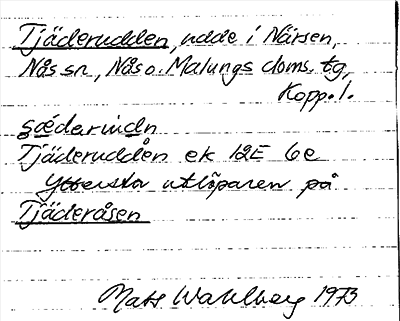 Tjäderudden, udde i Närsen,
Nås sn, Nås o. Malungs doms. tg,
Kopp. l.
Tjäderudden ek 12E 6e
Yttersta utlöparen på
Tjäderåsen
Mats Wahlberg 1973